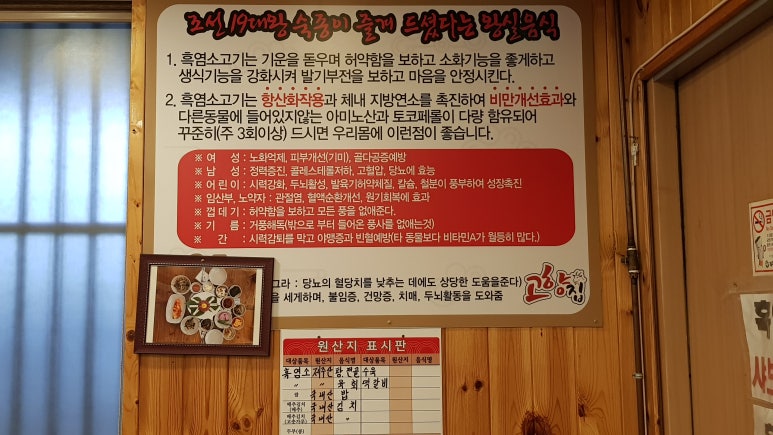 조선 19대왕 숙종이 즐겨 드셨다는 왕실음식
1. 흑염소고기는 기운을 돋우며 허약함을 보하고 소화기능을 좋게하고
생식기능을 강화시켜 발기부전을 보하고 마음을 안정시킨다.
2. 흑염소고기는 항산화작용과 체내 지방연소를 촉진하여 비만개선효과와
다른동물에 들어있지않는 아미노산과 토코페롤이 다량 함유되어
꾸준히(주 3회이상) 드시면 우리몸에 이런점이 좋습니다.
※ 여 성 : 노화억제, 피부개선(기미), 골다공증예방
※ 남 성 : 정력증진, 콜레스테롤저하, 고혈압, 당뇨에 효능
※ 어 린 이 : 시력강화, 두뇌활성, 발육기허약체질, 칼슘, 철분이 풍부하여 성장촉진
※ 임산부, 노약자 : 관절염, 혈액순환개선, 원기회복에 효과
※ 껍 데 기 : 허약함을 보하고 모든 풍을 없애준다.
※ 기 름 : 거풍해독(밖으로 부터 들어온 풍사를 없애는것)
※ 간 : 시력감퇴를 막고 야맹증과 빈혈예방(타 동물보다 비타민A가 월등히 많다.)
그라 : 당뇨의 혈당치를 낮추는 데에도 상당한 도움을준다)
을 세게하며, 불임증, 건망증, 치매, 두뇌활동을 도와줌
고향집
원산지 표시판
대상품목 원산지 음식명 대상품목 원산지 음식명
흑염소 탕 전골 수육
〃 〃 육회 역갈비
쌀 국내산 밥
배추김치 (배추) 국내산 김치
배추김치 (고춧가루) 국내산 〃
두부(콩)
금
흑
샤